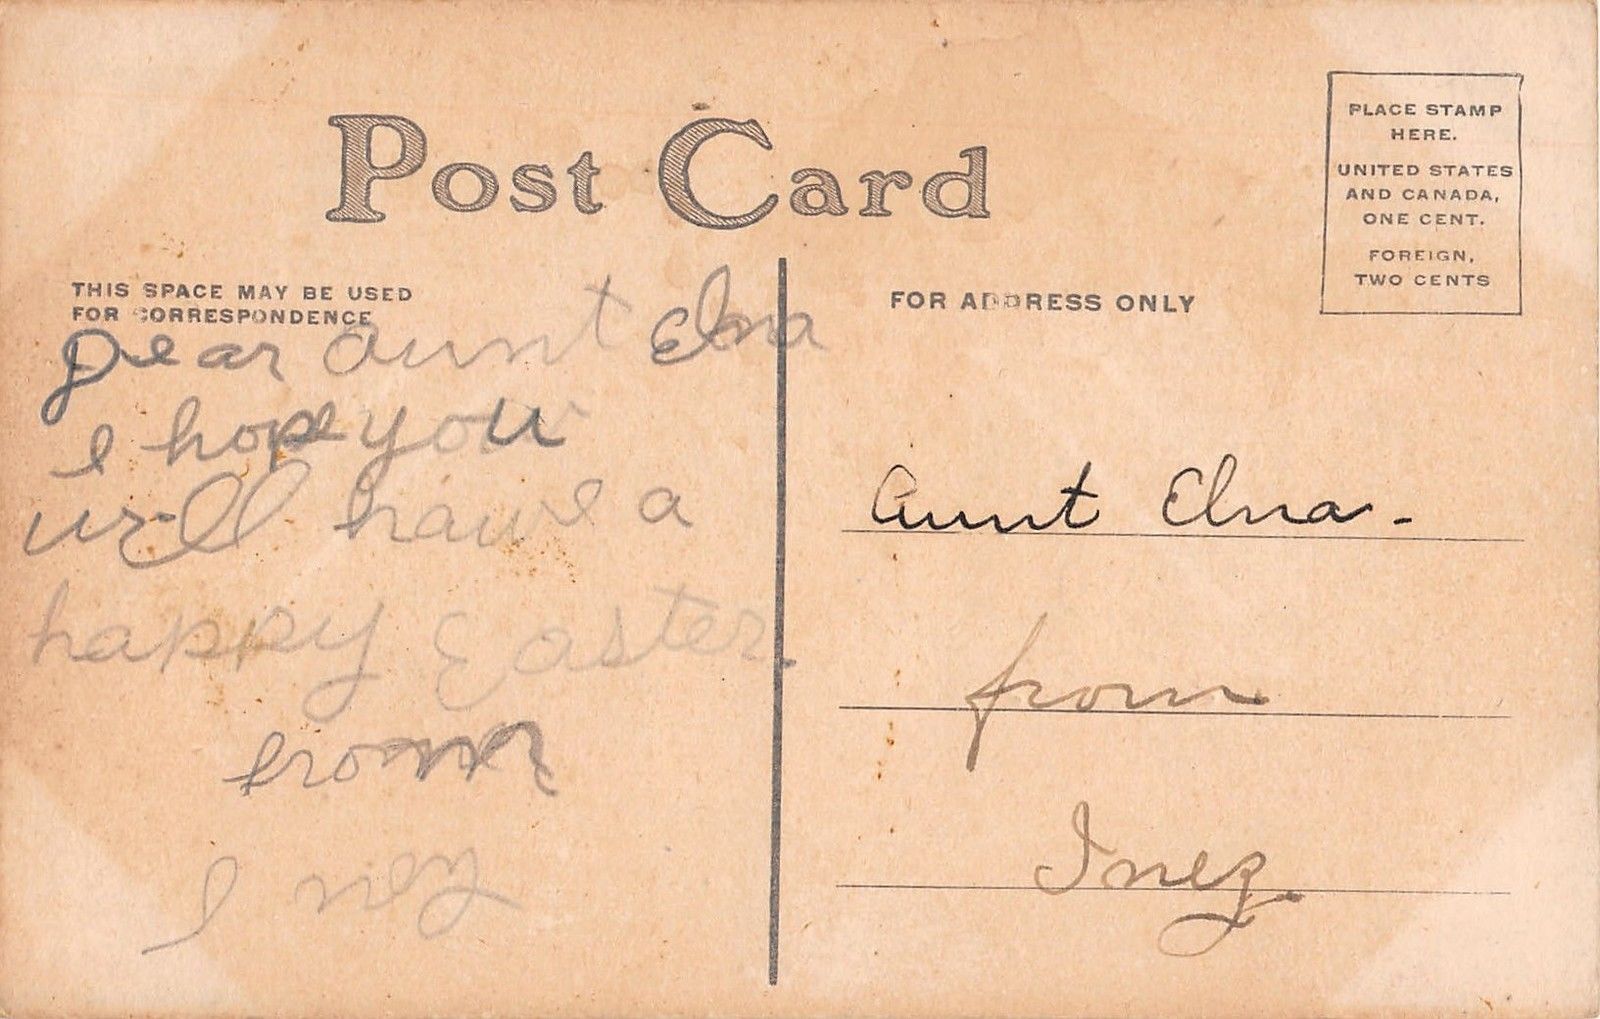 Post Card
PLACE STAMP
HERE.
UNITED STATES
AND CANADA,
ONE CENT.
FOREIGN,
TWO CENTS
THIS SPACE MAY BE USED
FOR CORRESPONDENCE
Dear Aunt Elna
I hope you
will have a
happy Easter.
from
Inez
FOR ADDRESS ONLY
Aunt Elna-
from
Inez.